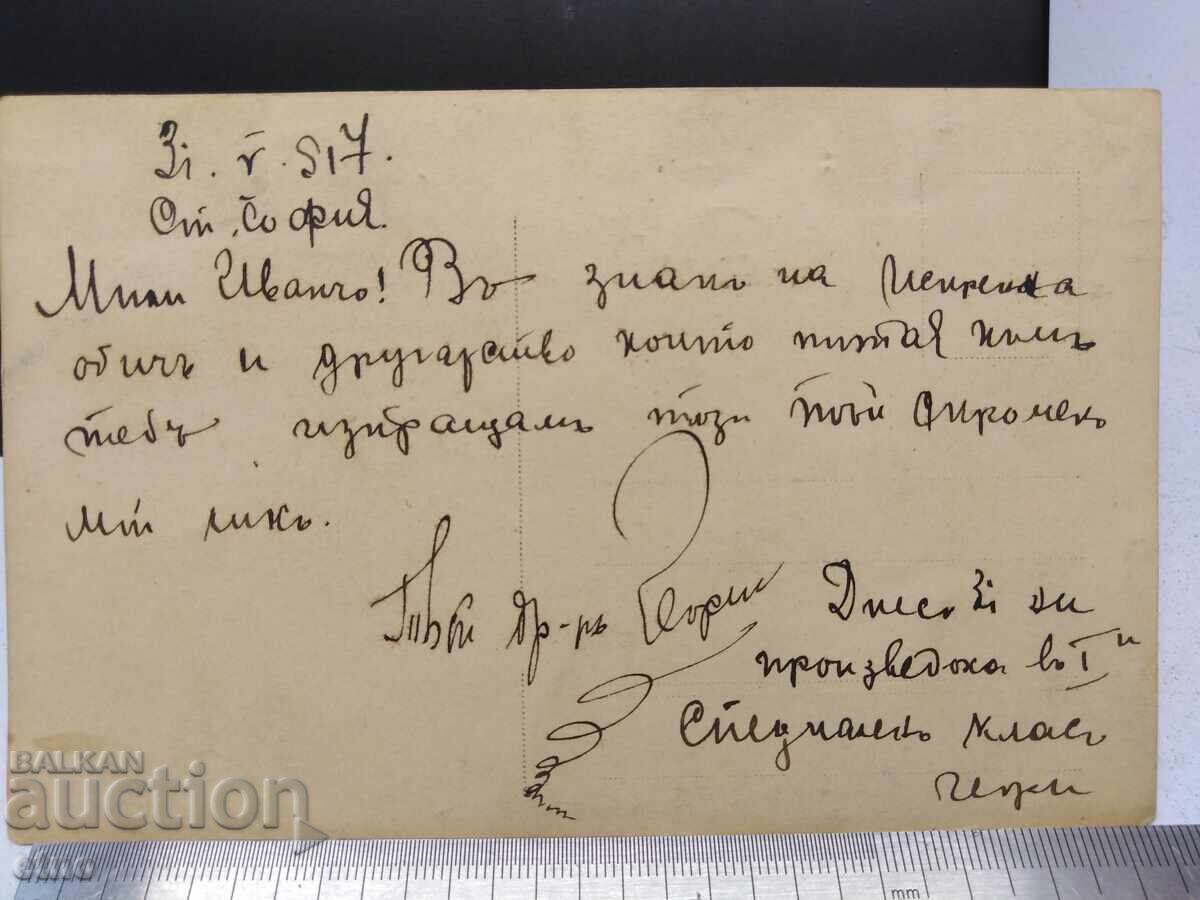 31. V. 917.
Ст. София
Мили Иванчо! Въ знакъ на Искренна
обичъ и другарство които питая къмъ
тебъ изпращамъ този твой скроменъ
ми ликъ.
Твой др-рь Георги
Днесъ 31 ни
произведоха въ I и
Специаленъ класъ
BALKAN
auction
etno
mm